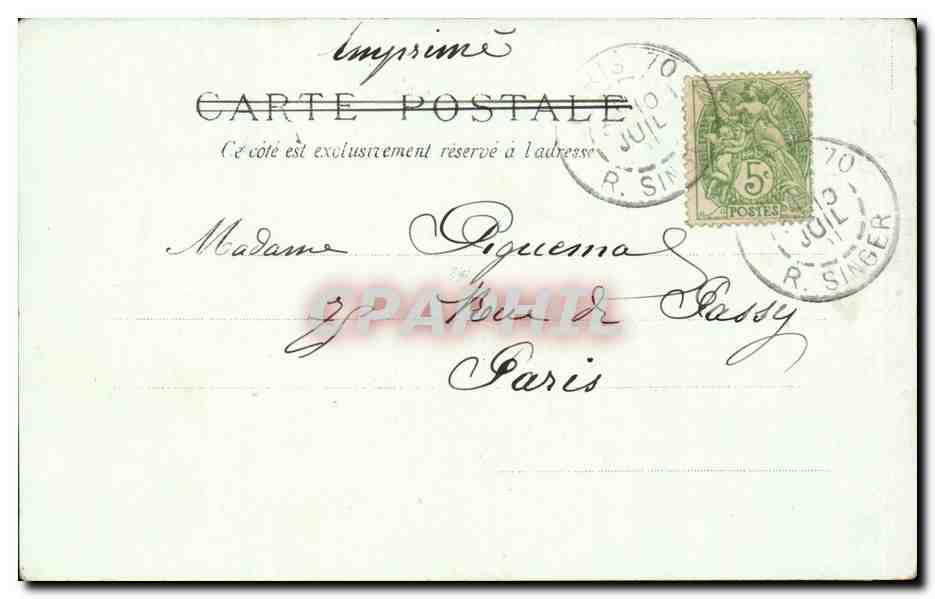 Imprimé
CARTE POSTALE
Ce côté est exclusivement réservé à l'adresse
70
10
JUIL
R. SINGER
5c
POSTES
70
10
JUIL
R. SINGER
Madame Piquemal
Rue de Passy
Paris
CPAPHIL